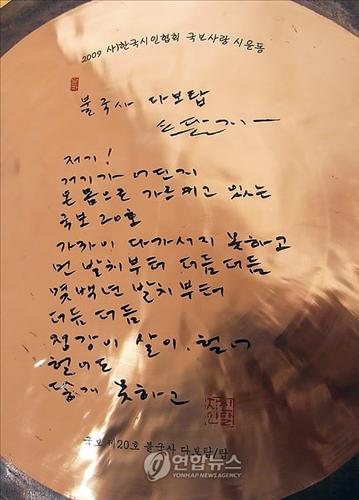 2009 사)한국시인협회 국보사랑 시운동
불국사 다보탑
저기!
거기가 어딘지
온 몸으로 가르키고 있는
국보 20호
가까이 다가서지 못하고
먼 발치부터 더듬더듬
몇백년 발치부터
더듬 더듬
정강이 살이, 헐어
헐어도
닿게 못하고
국보 제20호 불국사 다보탑/탑
연합뉴스
YONHAP NEWS AGENCY